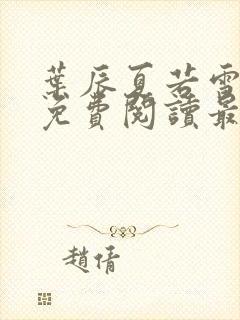 葉辰夏若雪
免費閱讀最
趙倩